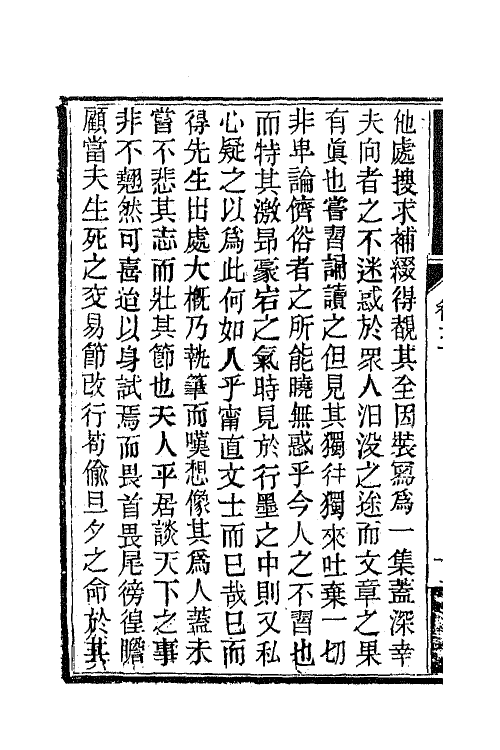 他處搜求補綴得覩其全因裝寫爲一集蓋深幸
夫向者之不迷惑於眾人汨没之途而文章之果
有眞也嘗習誦讀之但見其獨往獨來吐棄一切
非卑論儕俗者之所能曉無惑乎今人之不習也
而特其激昂豪宕之氣時見於行墨之中則又私
心疑之以爲此何如人乎甯直文士而已哉已而
得先生出處大槪乃執筆而嘆想像其爲人蓋未
嘗不悲其志而壯其節也夫人平居談天下之事
非不翹然可喜迨以身試焉而畏首畏尾徬徨瞻
顧當夫生死之交易節改行苟偷旦夕之命於其